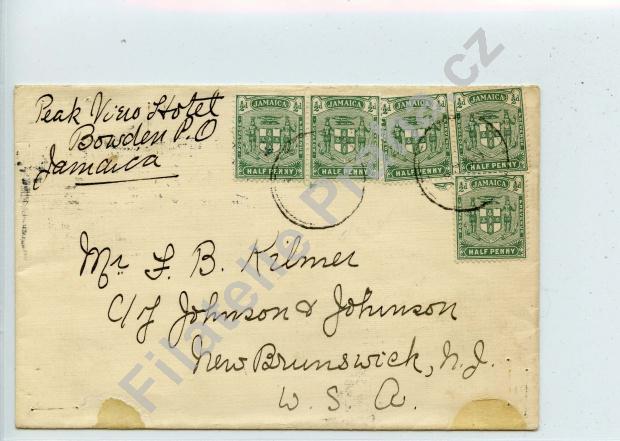 Peak View Hotel
Bowden P.O
Jamaica
½d JAMAICA ½d
HALF PENNY
½d JAMAICA ½d
HALF PENNY
½d JAMAICA ½d
HALF PENNY
½d JAMAICA ½d
HALF PENNY
½d JAMAICA ½d
HALF PENNY
Mr F. B. Kilmer
c/o Johnson & Johnson
New Brunswick, N.J.
U. S. A.
Filatelie Praha.cz